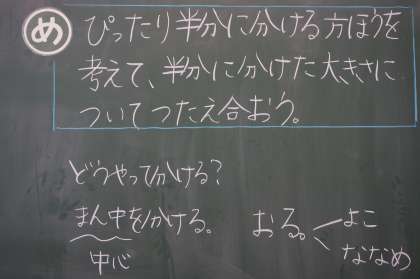 め
ぴったり半分に分ける方ほうを
考えて、半分に分けた大きさに
ついてつたえ合おう。
どうやって分ける?
まん中を分ける。
中心
おる。
よこ
ななめ